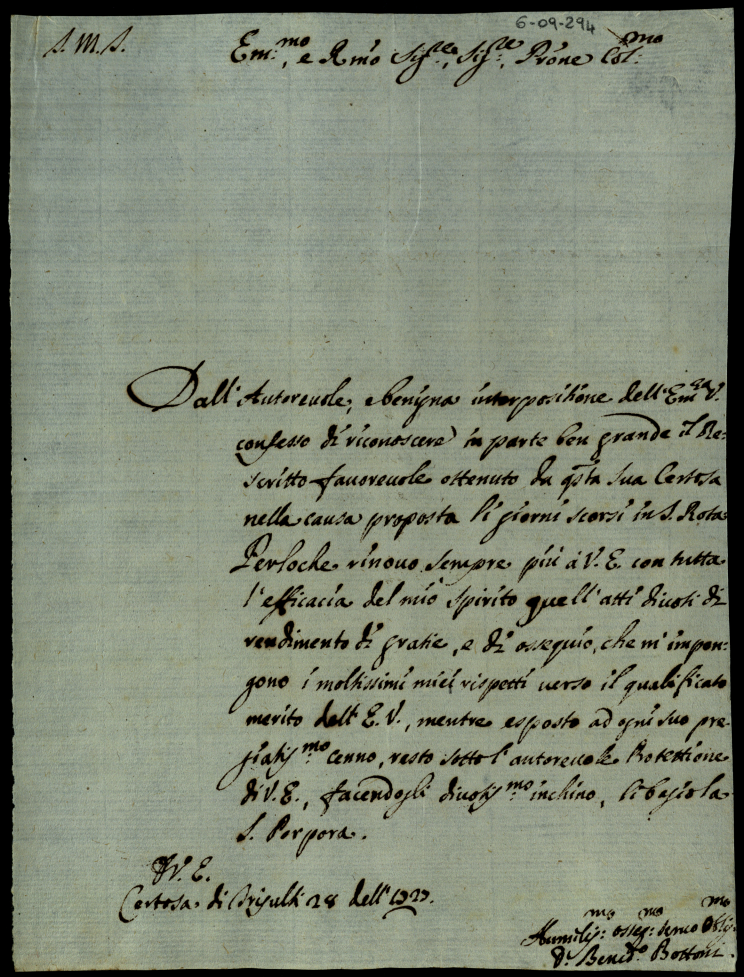 6-09-294
Em.mo, e Rmo Sig.re, Sig.re, Prone Col.mo
Dall'Autoreuole, e benigna interpositione dell'Em.za V.
confesso di riconoscere in parte ben grande il Re-
scritto fauoreuole ottenuto da qsta sua Certosa
nella causa proposta li giorni scorsi in S. Rota
Perloche rinouo sempre più à V. E. con tutta
l'efficacia del mio spirito quell'atti diuoti di
rendimento di gratie, e di ossequio, che m'impon-
gono i moltissimi miei rispetti uerso il qualificato
merito dell'E. V., mentre esposto ad ogni suo pre
giatiss.mo cenno, resto sotto l'autoreuole Protettione
di V. E., facendogli diuotiss.mo inchino, li bagio la
S. Porpora.
D. V. E.
Certosa di Trisulti 28 dell'
Humiliss.mo osseq.mo seruo Obblig.mo
D. Bened.o Bottoni